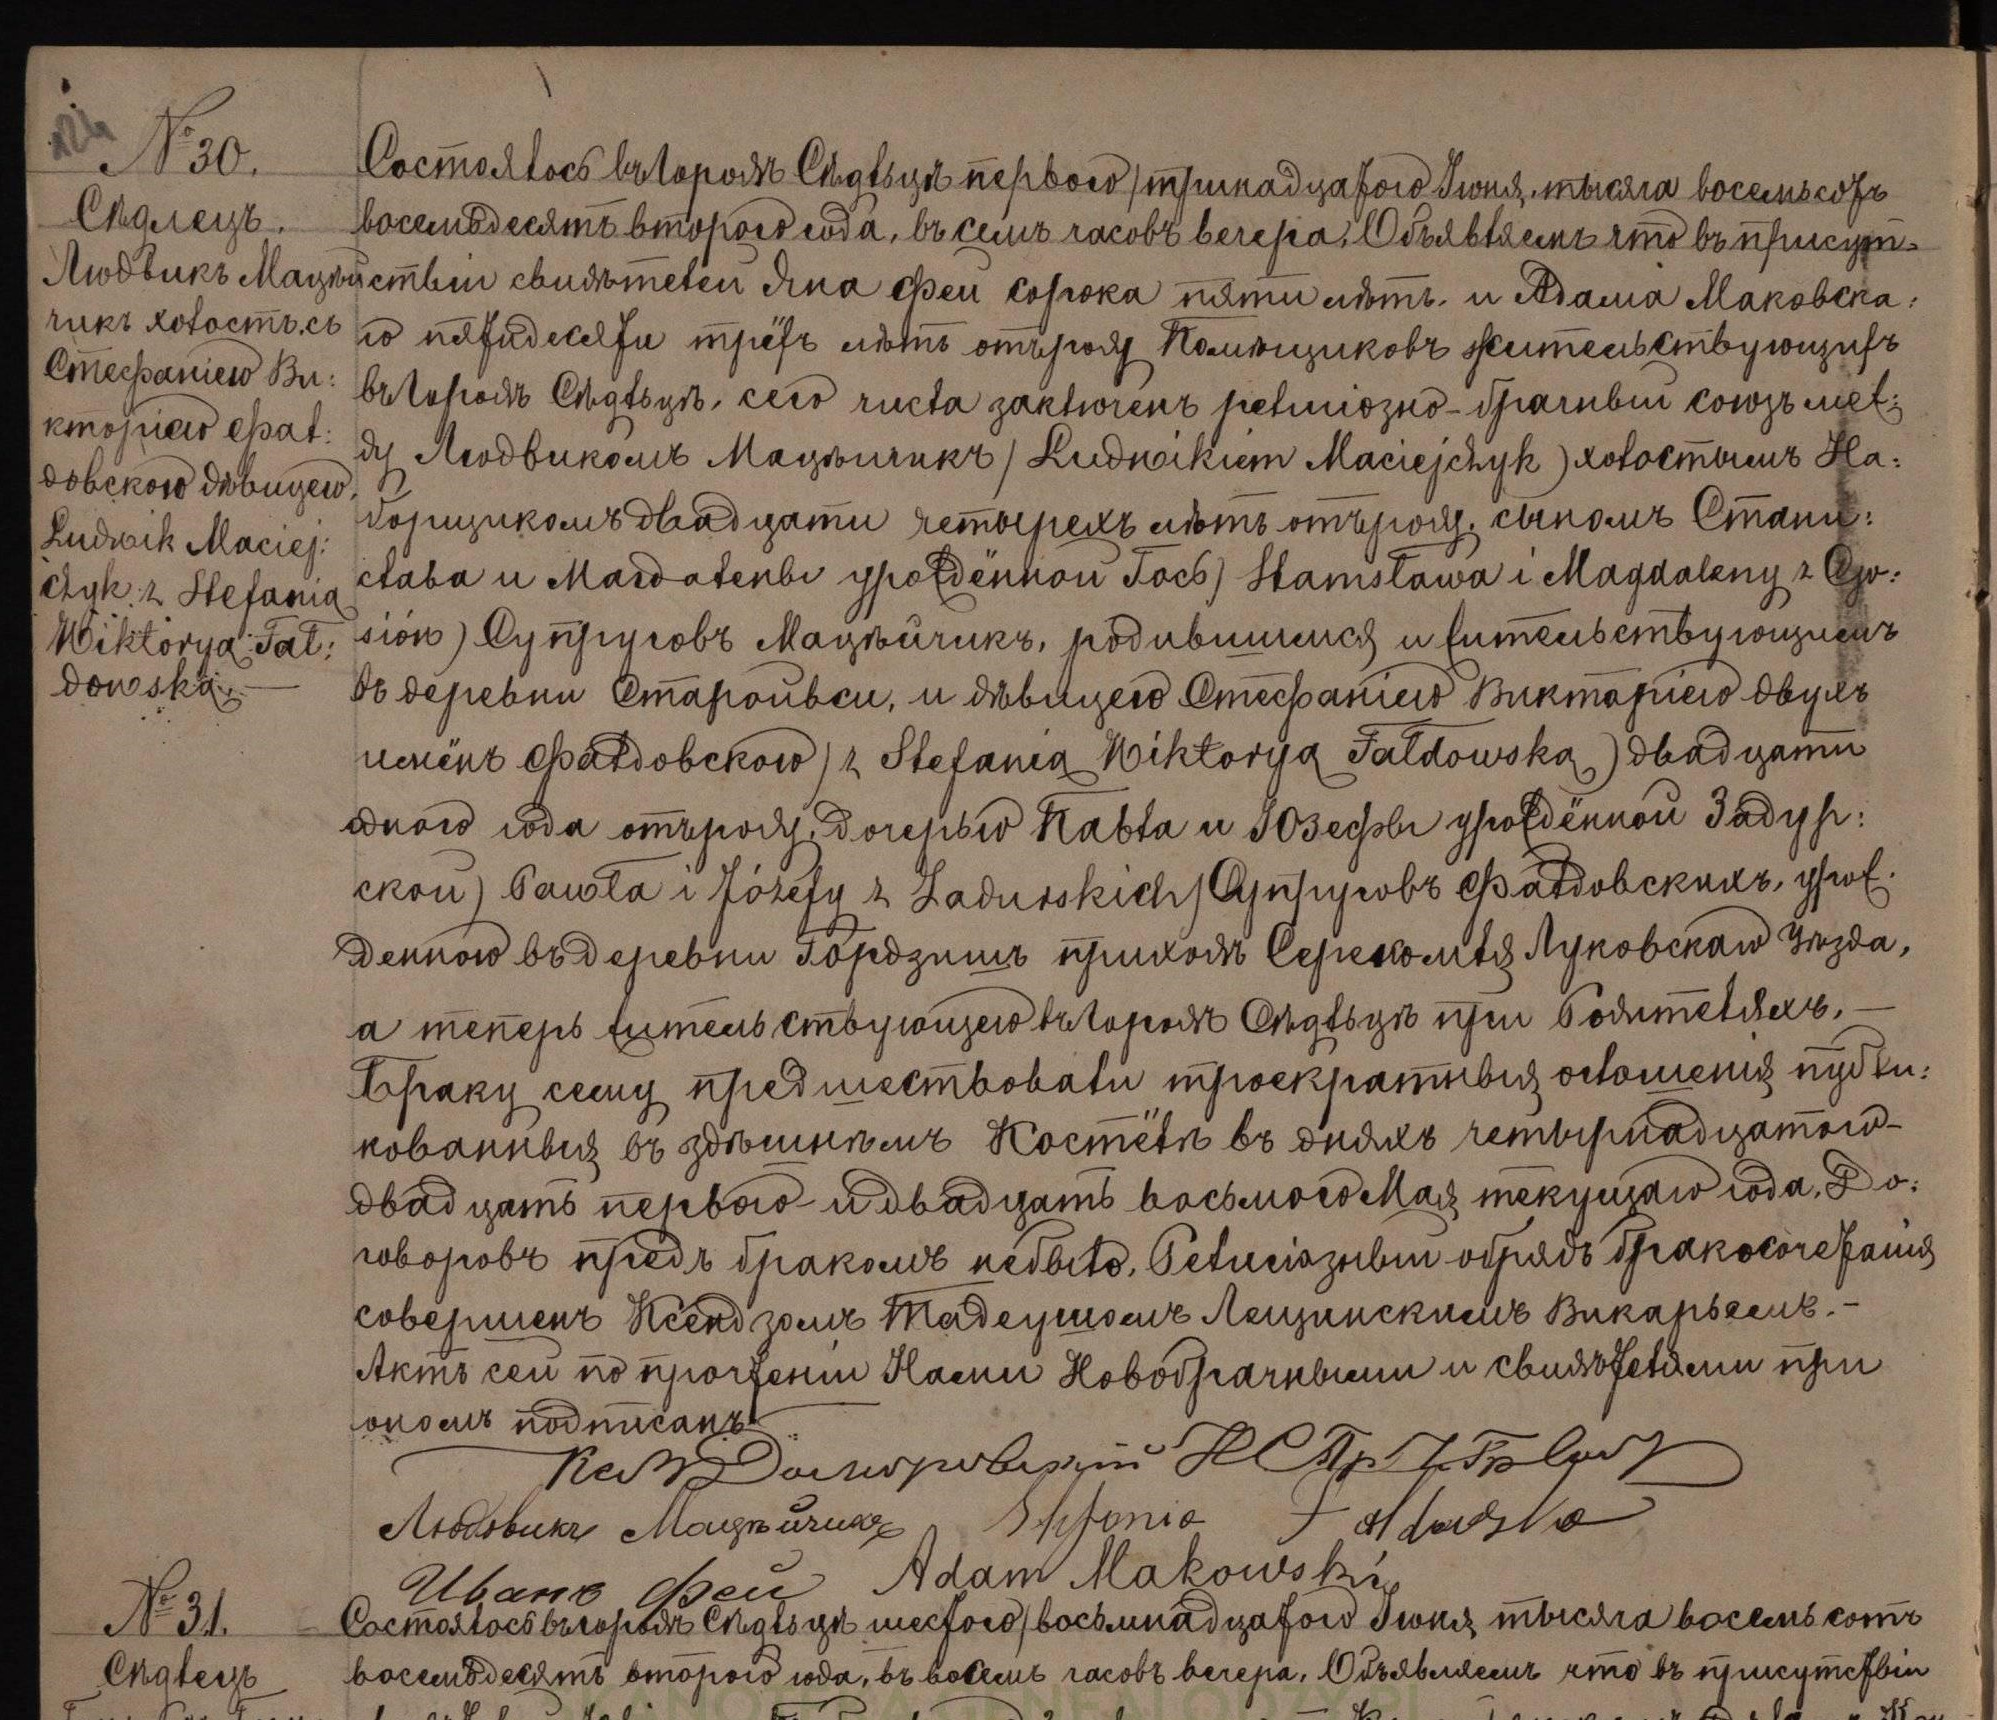 № 30.
Сѣдлецъ.
Людвикъ Мацѣй
чикъ холостъ, съ
Стефаніею Ви:
кторіею Фал:
довскою дѣвицею.
Ludwik Maciej:
czyk: z Stefania
Wiktorya Fał:
dowska. —
Состоялось въ городѣ Сѣдльцѣ первого / тринадцатого Іюня, тысяча восемьсотъ
восемьдесятъ второго года, въ семь часовъ вечера, Объявляемъ что въ присут=
ствіи свидѣтелей Яна Фей сорока пяти лѣтъ. и Адама Маковска:
го пятидесяти трёхъ лѣтъ отъ роду Помѣщиковъ жительствующихъ
въ городѣ Сѣдльцѣ, сего числа заключенъ религіозно-брачный союзъ меж:
ду Людвикомъ Мацѣйчикъ / Ludwikiem Maciejczyk ) холостымъ На:
борщикомъ двадцати четырехъ лѣтъ отъ роду, сыномъ Стани:
слава и Магдалены урождённой Гось) Stanisława i Magdaleny z Gę:
siów ) Супруговъ Мацѣйчикъ, родившимся и жительствующимъ
въ деревни Старойвси, и дѣвицею Стефаніею Викторіею двухъ
имёнъ Фалдовскою ) z Stefania Wiktorya Fałdowska ) двадцати
одного года отъ роду, дочерью Павла и Юзефы урождённой Задур:
ской ) Pawła i Józefy z Zadurskich ) Супруговъ Фалдовскихъ, урож.
денною въ деревни Гордзишъ приходѣ Серокомля Луковскаго Уѣзда,
а теперь жительствующею въ городѣ Сѣдльцѣ при Родителяхъ. —
Браку сему предшествовали троекратныя оглошенія публи:
кованныя въ здѣшнѣмъ Костёлѣ въ дняхъ четырнадцатого -
двадцать первого - и двадцать восьмого Мая текущаго года. До:
говоровъ предъ бракомъ небыло. Религіозный обрядъ бракосочетанія
совершенъ Ксендзомъ Тадеушомъ Лещинскимъ Викарьемъ. -
Актъ сей по прочтеніи Нами Новобрачными и свидѣтелями при
ономъ подписанъ
Людовикъ Мацѣйчикъ Stefania Fałdowska
Иванъ Фей Adam Makowski
№ 31.
Сѣдлецъ
Состоялось въ городѣ Сѣдльцѣ шестого / восьмнадцатого Іюня тысяча восемь сотъ
восемьдесятъ второго года, въ восемь часовъ вечера. Объявляемъ что въ присутствіи